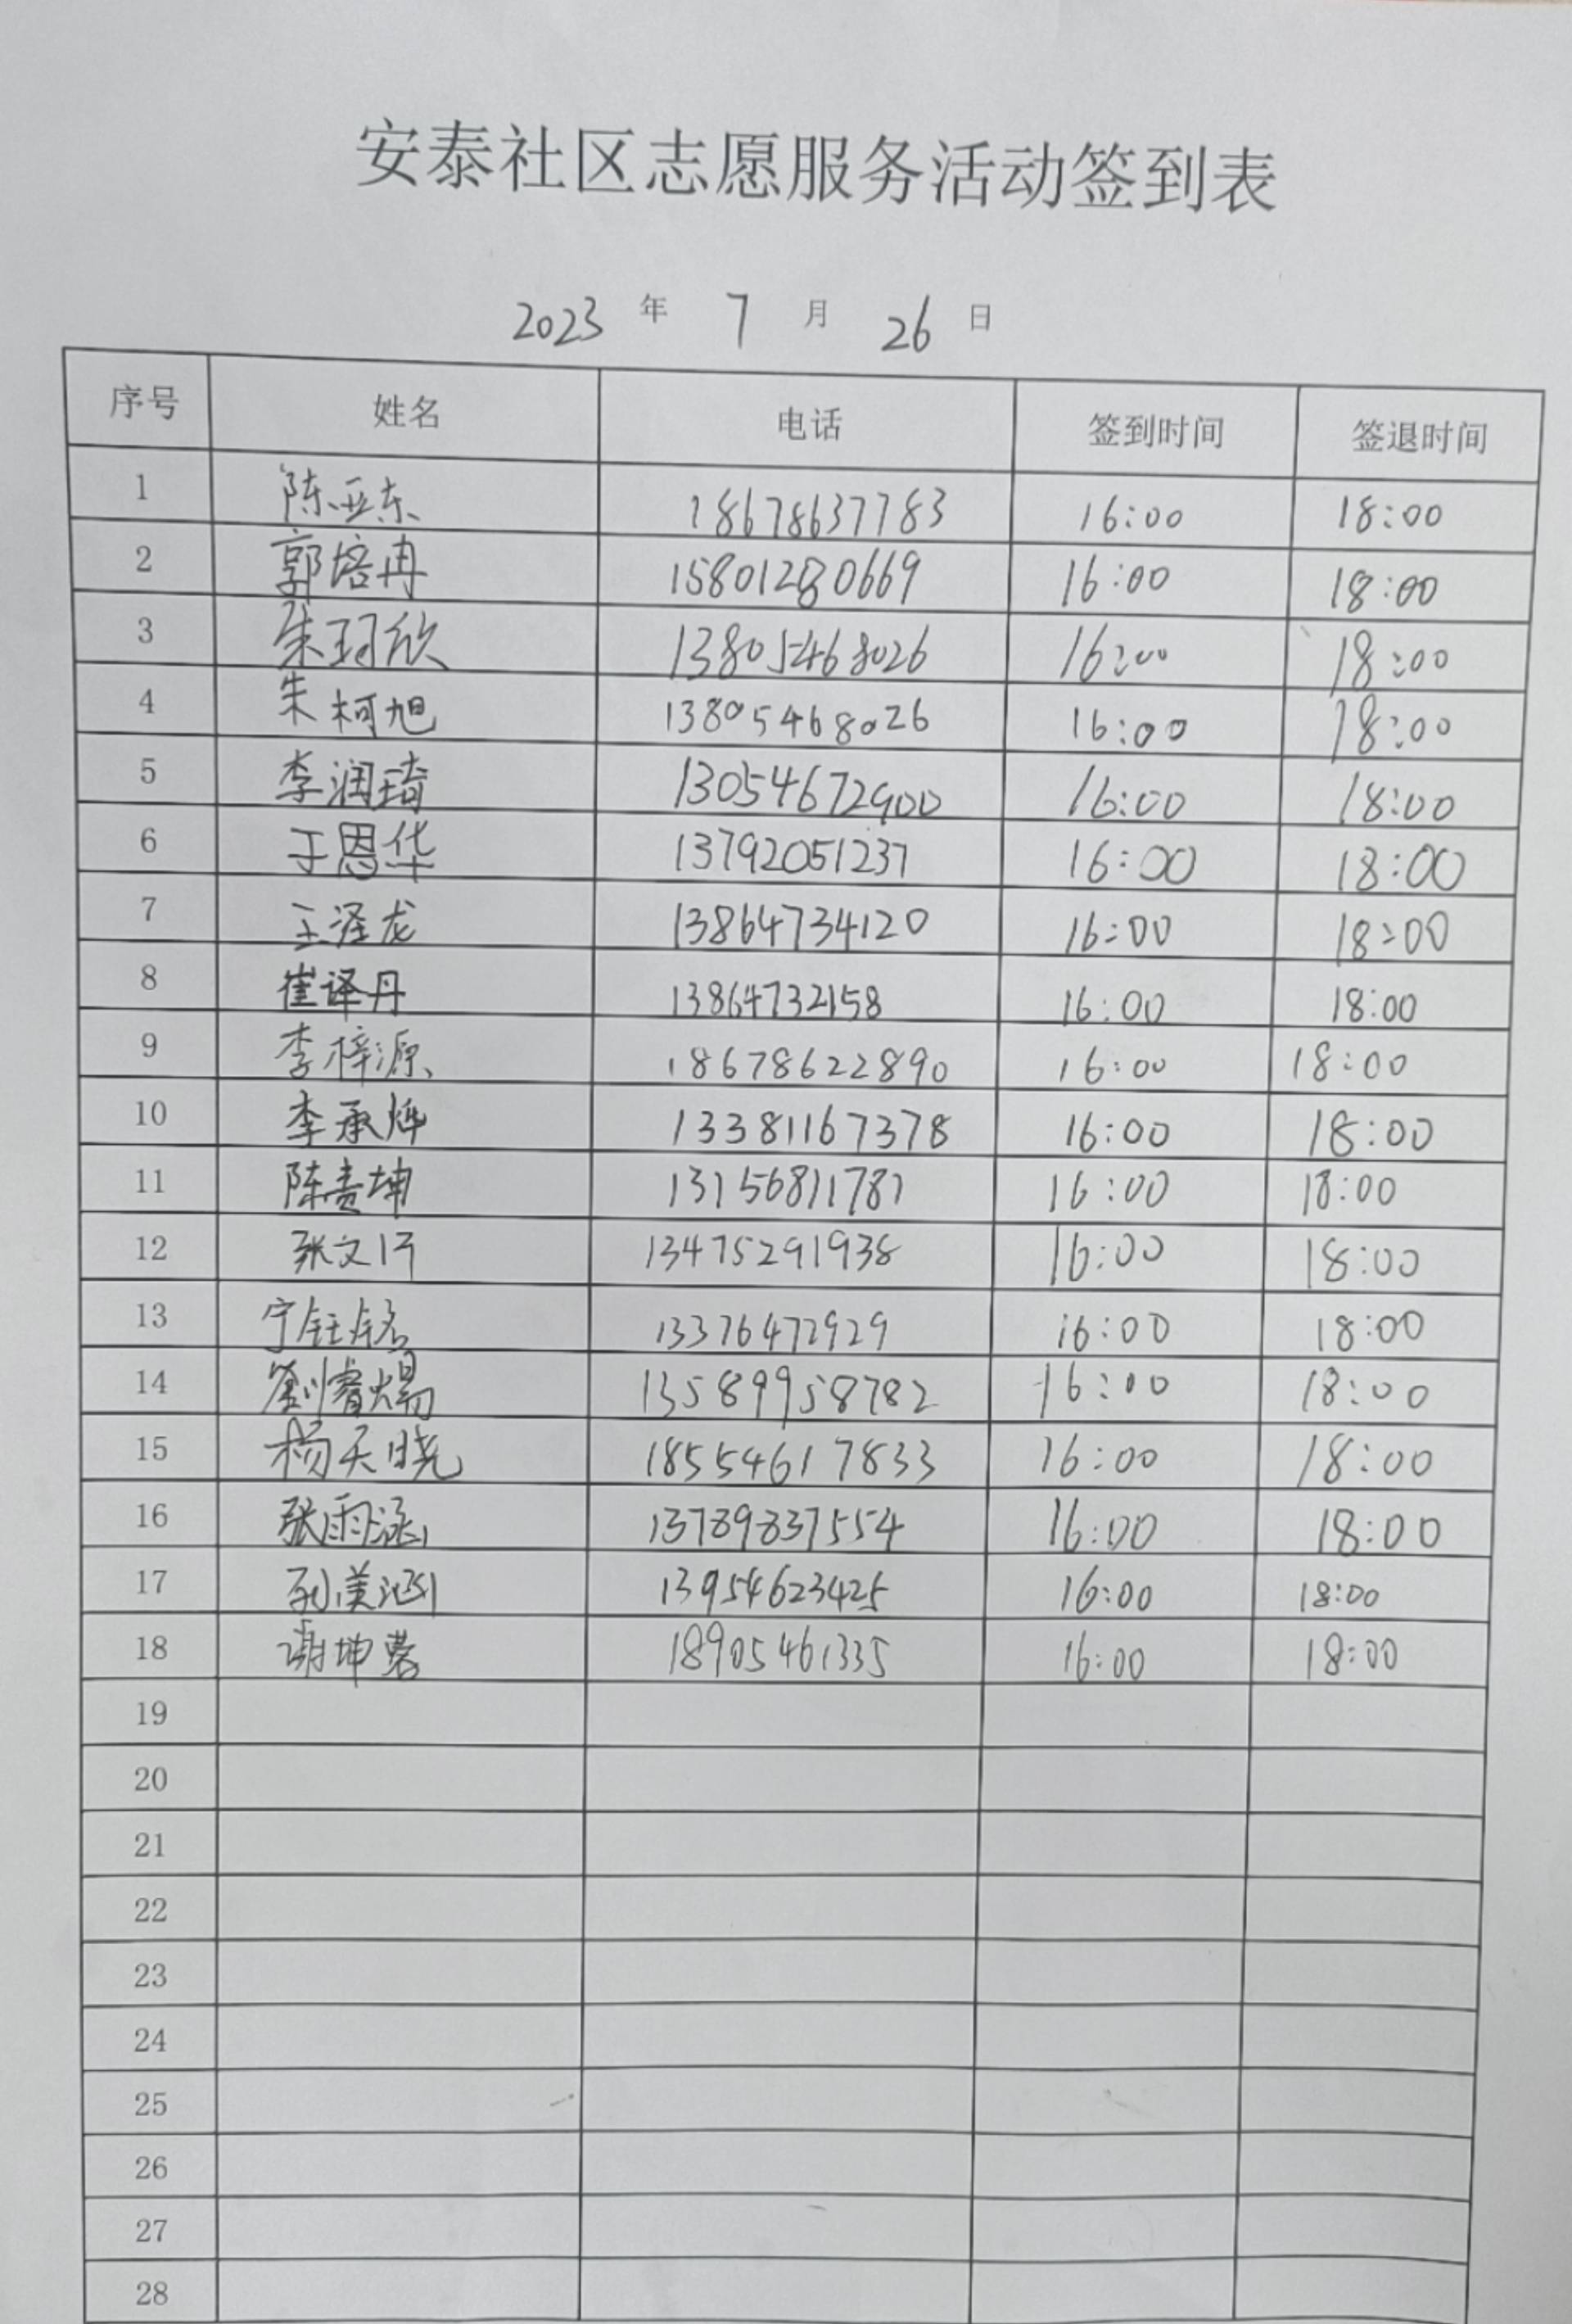 安泰社区志愿服务活动签到表
2023 年 7 月 26 日
序号 姓名 电话 签到时间 签退时间
1 陈亚东 18678637783 16:00 18:00
2 郭培冉 15801280669 16:00 18:00
3 朱珂欣 13805468026 16:00 18:00
4 朱柯旭 13805468026 16:00 18:00
5 李润琦 13054672900 16:00 18:00
6 于恩华 13792051237 16:00 18:00
7 王泽龙 13864734120 16:00 18:00
8 崔译丹 13864732158 16:00 18:00
9 李梓源 18678622890 16:00 18:00
10 李承烨 13381167378 16:00 18:00
11 陈贵坤 13156811781 16:00 18:00
12 张文 13475291938 16:00 18:00
13 宁钰铭 13376472929 16:00 18:00
14 劉睿煬 13589958782 16:00 18:00
15 杨天晓 18554617833 16:00 18:00
16 张雨涵 13789837554 16:00 18:00
17 孙美涵 13954623425 16:00 18:00
18 谢坤蓉 18905461335 16:00 18:00
19
20
21
22
23
24
25
26
27
28